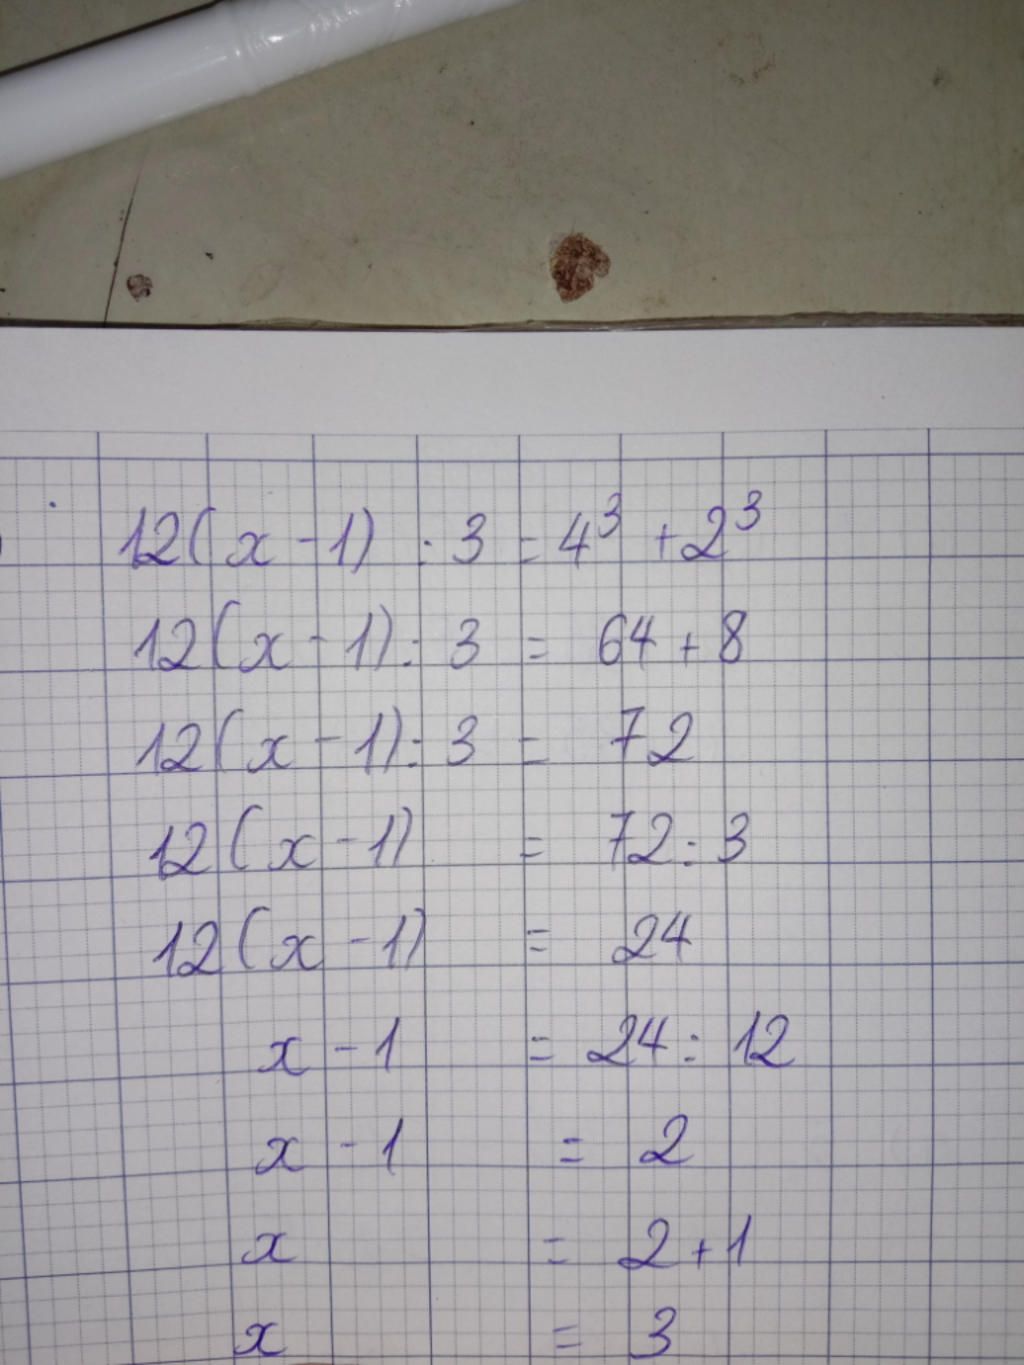 12(x-1) : 3 = 4³ + 2³
12(x-1) : 3 = 64 + 8
12(x-1) : 3 = 72
12(x-1) = 72 : 3
12(x-1) = 24
x-1 = 24 : 12
x-1 = 2
x = 2+1
x = 3